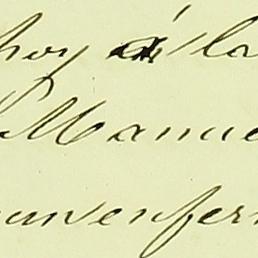 hoy á la
Manue
en enfer